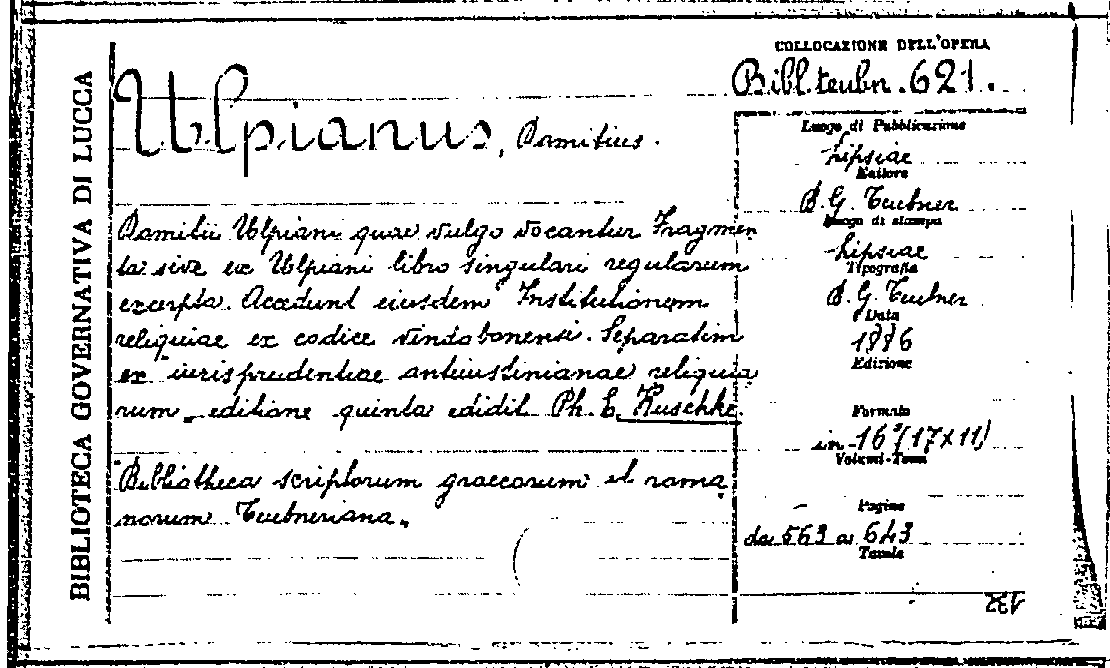 BIBLIOTECA GOVERNATIVA DI LUCCA
COLLOCAZIONE DELL'OPERA
Bibl. teubn. 621.
Ulpianus, Domitius.
Domitii Ulpiani quae vulgo vocantur Fragmen
ta sive ex Ulpiani libro singulari regularum
excerpta. Accedunt eiusdem Institutionem
reliquiae ex codice vindobonensi. Separatim
ex iurisprudentiae anteiustinianae reliquia
rum editione quinta edidit Ph. E. Huschke.
Bibliotheca scriptorum graecorum et roma
norum Teubneriana.
Luogo di Pubblicazione
Lipsiae
Editore
B. G. Teubner
Luogo di stampa
Lipsiae
Tipografia
B. G. Teubner
Data
1886
Edizione
Formato
in-16° (17x11)
Volumi-Tomi
Pagine
da 563 a 643
Tavole